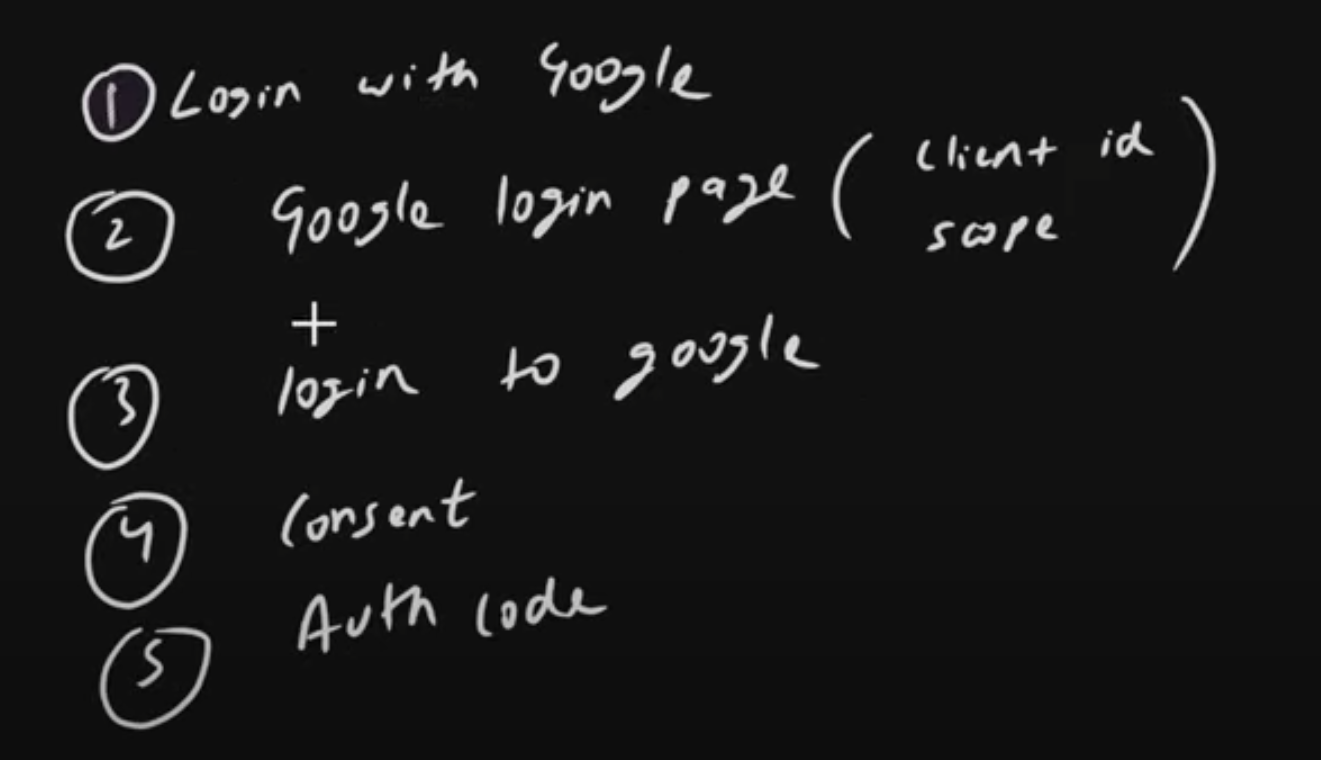 1 Login with Google
2 Google login page ( client id
scope )
+
3 login to google
4 Consent
5 Auth code